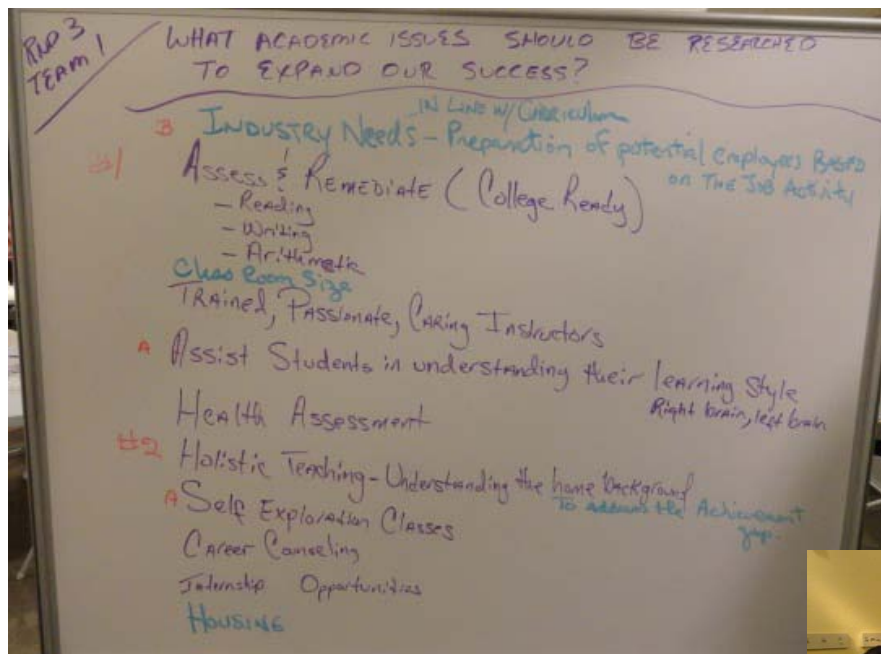 RND 3
TEAM 1
WHAT ACADEMIC ISSUES SHOULD BE RESEARCHED
TO EXPAND OUR SUCCESS?
IN LINE W/ CURRICULUM
B INDUSTRY Needs - Preparation of potential employees BASED
ON THE JOB Activity
#1 Assess & REMEDIATE (College Ready)
- Reading
- Writing
- Arithmetic
Class Room Size
TRAINED, PASSIONATE, CARING INSTRUCTORS
A Assist Students in understanding their learning Style
Right brain, left brain
Health Assessment
#2 Holistic Teaching - Understanding the home background
To address the Achievement
gap.
A Self Exploration Classes
Career Counseling
Internship Opportunities
HOUSING